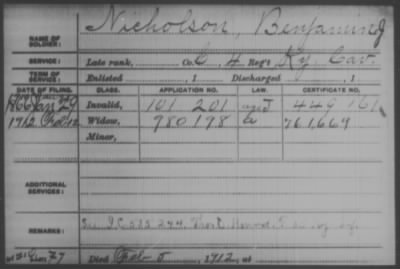 NAME OF SOLDIER: Nicholson, Benjamin J
SERVICE: Late rank, Co. C, 4 Reg't Ky. Cav.
TERM OF SERVICE: Enlisted , 1 Discharged , 1
DATE OF FILING. CLASS. APPLICATION NO. LAW. CERTIFICATE NO.
Jan 29 Invalid, 101 201 449 161
1912 Feb 12 Widow, 980 198 a 761,669
Minor,
ADDITIONAL SERVICES:
REMARKS: See I.C. 575 294
Died Feb 5, 1912, at